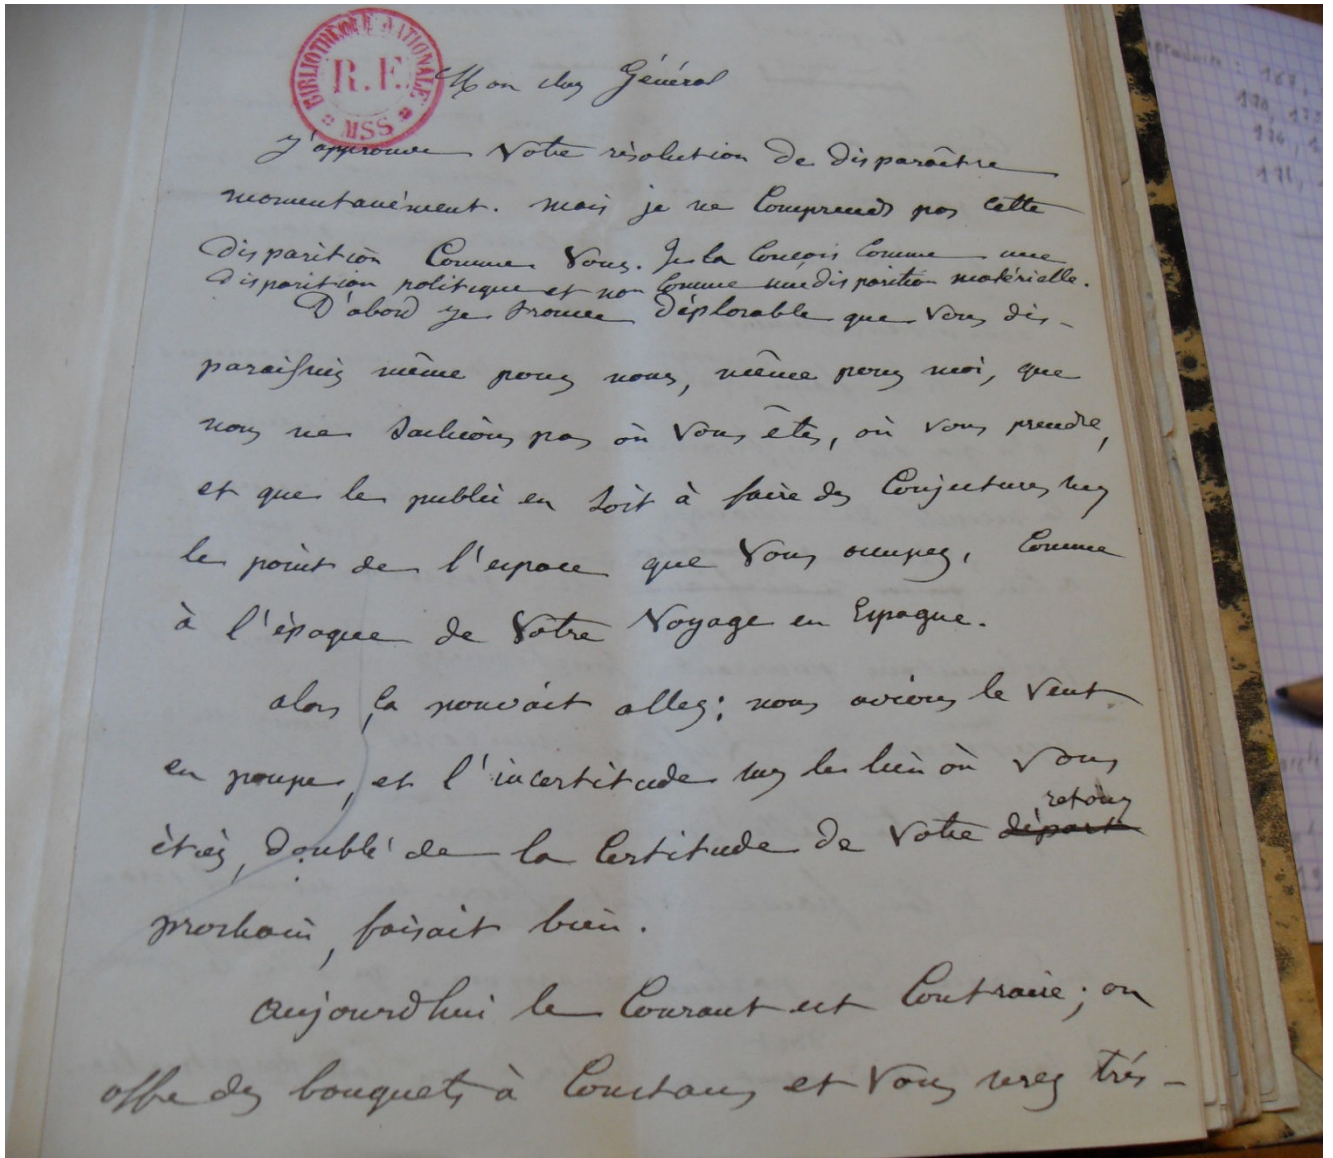 BIBLIOTHEQUE NATIONALE
R.F.
MSS
Mon cher Général
J'approuve votre résolution de disparaître
momentanément. mais je ne comprends pas cette
disparition comme vous. Je la conçois comme une
disparition politique et non comme une disparition matérielle.
D'abord je trouve déplorable que vous dis-
paraissiez même pour nous, même pour moi, que
nous ne sachions pas où vous êtes, où vous prendre,
et que le public en soit à faire des conjectures sur
le point de l'espace que vous occupez, comme
à l'époque de votre voyage en Espagne.
alors ça pouvait aller; nous avions le vent
en poupe, et l'incertitude sur le lieu où vous
étiez, doublé de la certitude de votre départ retour
prochain, faisait bien.
Aujourd'hui le courant est contraire; on
offre des bouquets à Constans et vous serez très-
167,
170, 173
174,